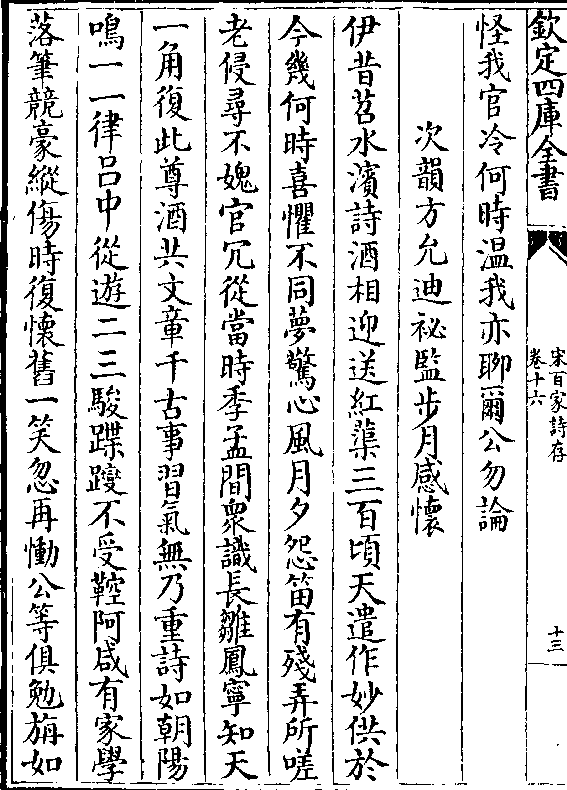 欽定四庫全書
宋百家詩存
卷十六
十三
怪我官冷何時温我亦聊爾公勿論
次韻方允迪祕監步月感懷
伊昔苕水濱詩酒相迎送紅蕖三百頃天遣作妙供於
今幾何時喜懼不同夢驚心風月夕怨笛有殘弄所嗟
老侵尋不媿官冗從當時季孟間衆識長雛鳳寧知天
一角復此尊酒共文章千古事習氣無乃重詩如朝陽
鳴一一律吕中從遊二三駿蹀躞不受鞚阿咸有家學
落筆競豪縱傷時復懷舊一笑忽再慟公等俱勉旃如